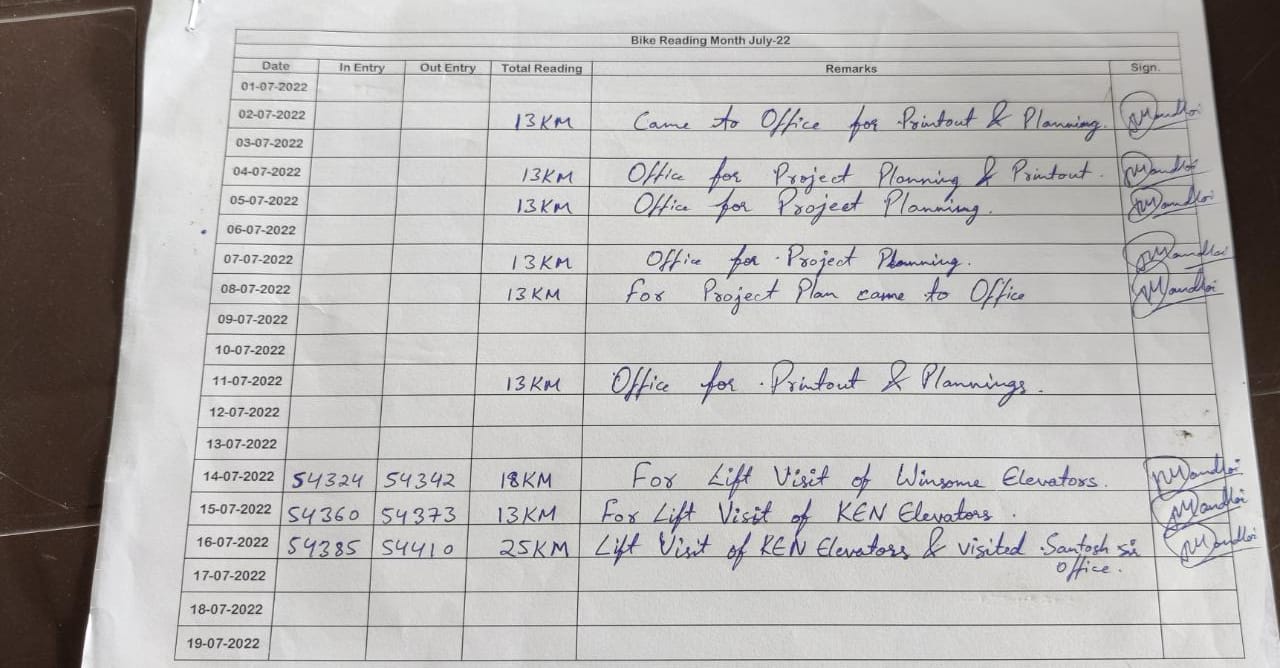 Bike Reading Month July-22
Date In Entry Out Entry Total Reading Remarks Sign.
01-07-2022
02-07-2022 13KM Came to Office for Printout & Planning.
03-07-2022
04-07-2022 13KM Office for Project Planning & Printout.
05-07-2022 13KM Office for Project Planning.
06-07-2022
07-07-2022 13KM Office for Project Planning.
08-07-2022 13KM For Project Plan came to Office
09-07-2022
10-07-2022
11-07-2022 13KM Office for Printout & Plannings.
12-07-2022
13-07-2022
14-07-2022 54324 54342 18KM For Lift Visit of Winsome Elevators.
15-07-2022 54360 54373 13KM For Lift Visit of KEN Elevators.
16-07-2022 54385 54410 25KM Lift Visit of KEN Elevators & visited Santosh sir
Office.
17-07-2022
18-07-2022
19-07-2022